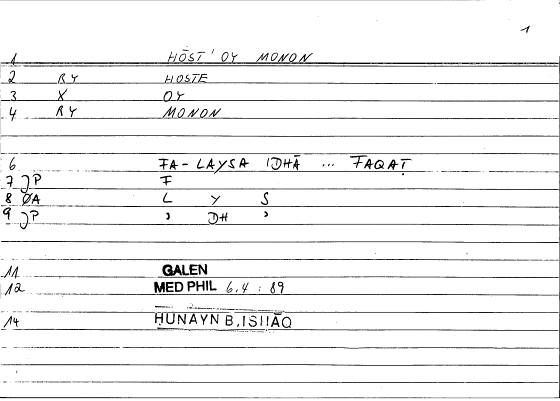 1
1 HŌST' OY MONON
2 RY HOSTE
3 X OY
4 RY MONON
6 FA-LAYSA IDHĀ ... FAQAṬ
7 JP F
8 ØA L Y S
9 JP ' DH '
11 GALEN
12 MED PHIL 6.4 : 89
14 ḤUNAYN B.ISḤĀQ